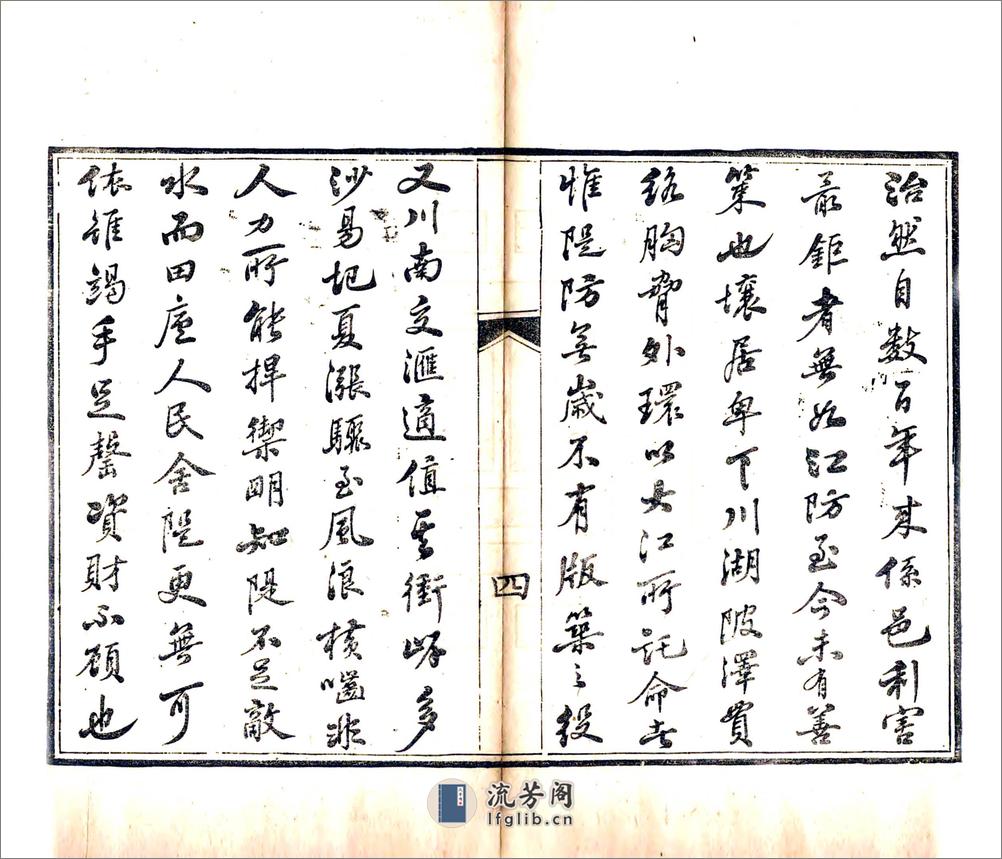 治然自数百年来係邑利害
最鉅者無如江防至今未有善
策也壤居卑下川湖陂澤貫
絡胸脅外環以大江所託命者
惟隄防無歲不有版築之役
四
又川南交滙適值其衝岸多
沙易圯夏漲驟至風浪橫嚙非
人力所能捍禦明知隄不足敵
水而田廬人民舍隄更無可
依雖竭手足罄資財不顧也
流芳阁
lfglib.cn